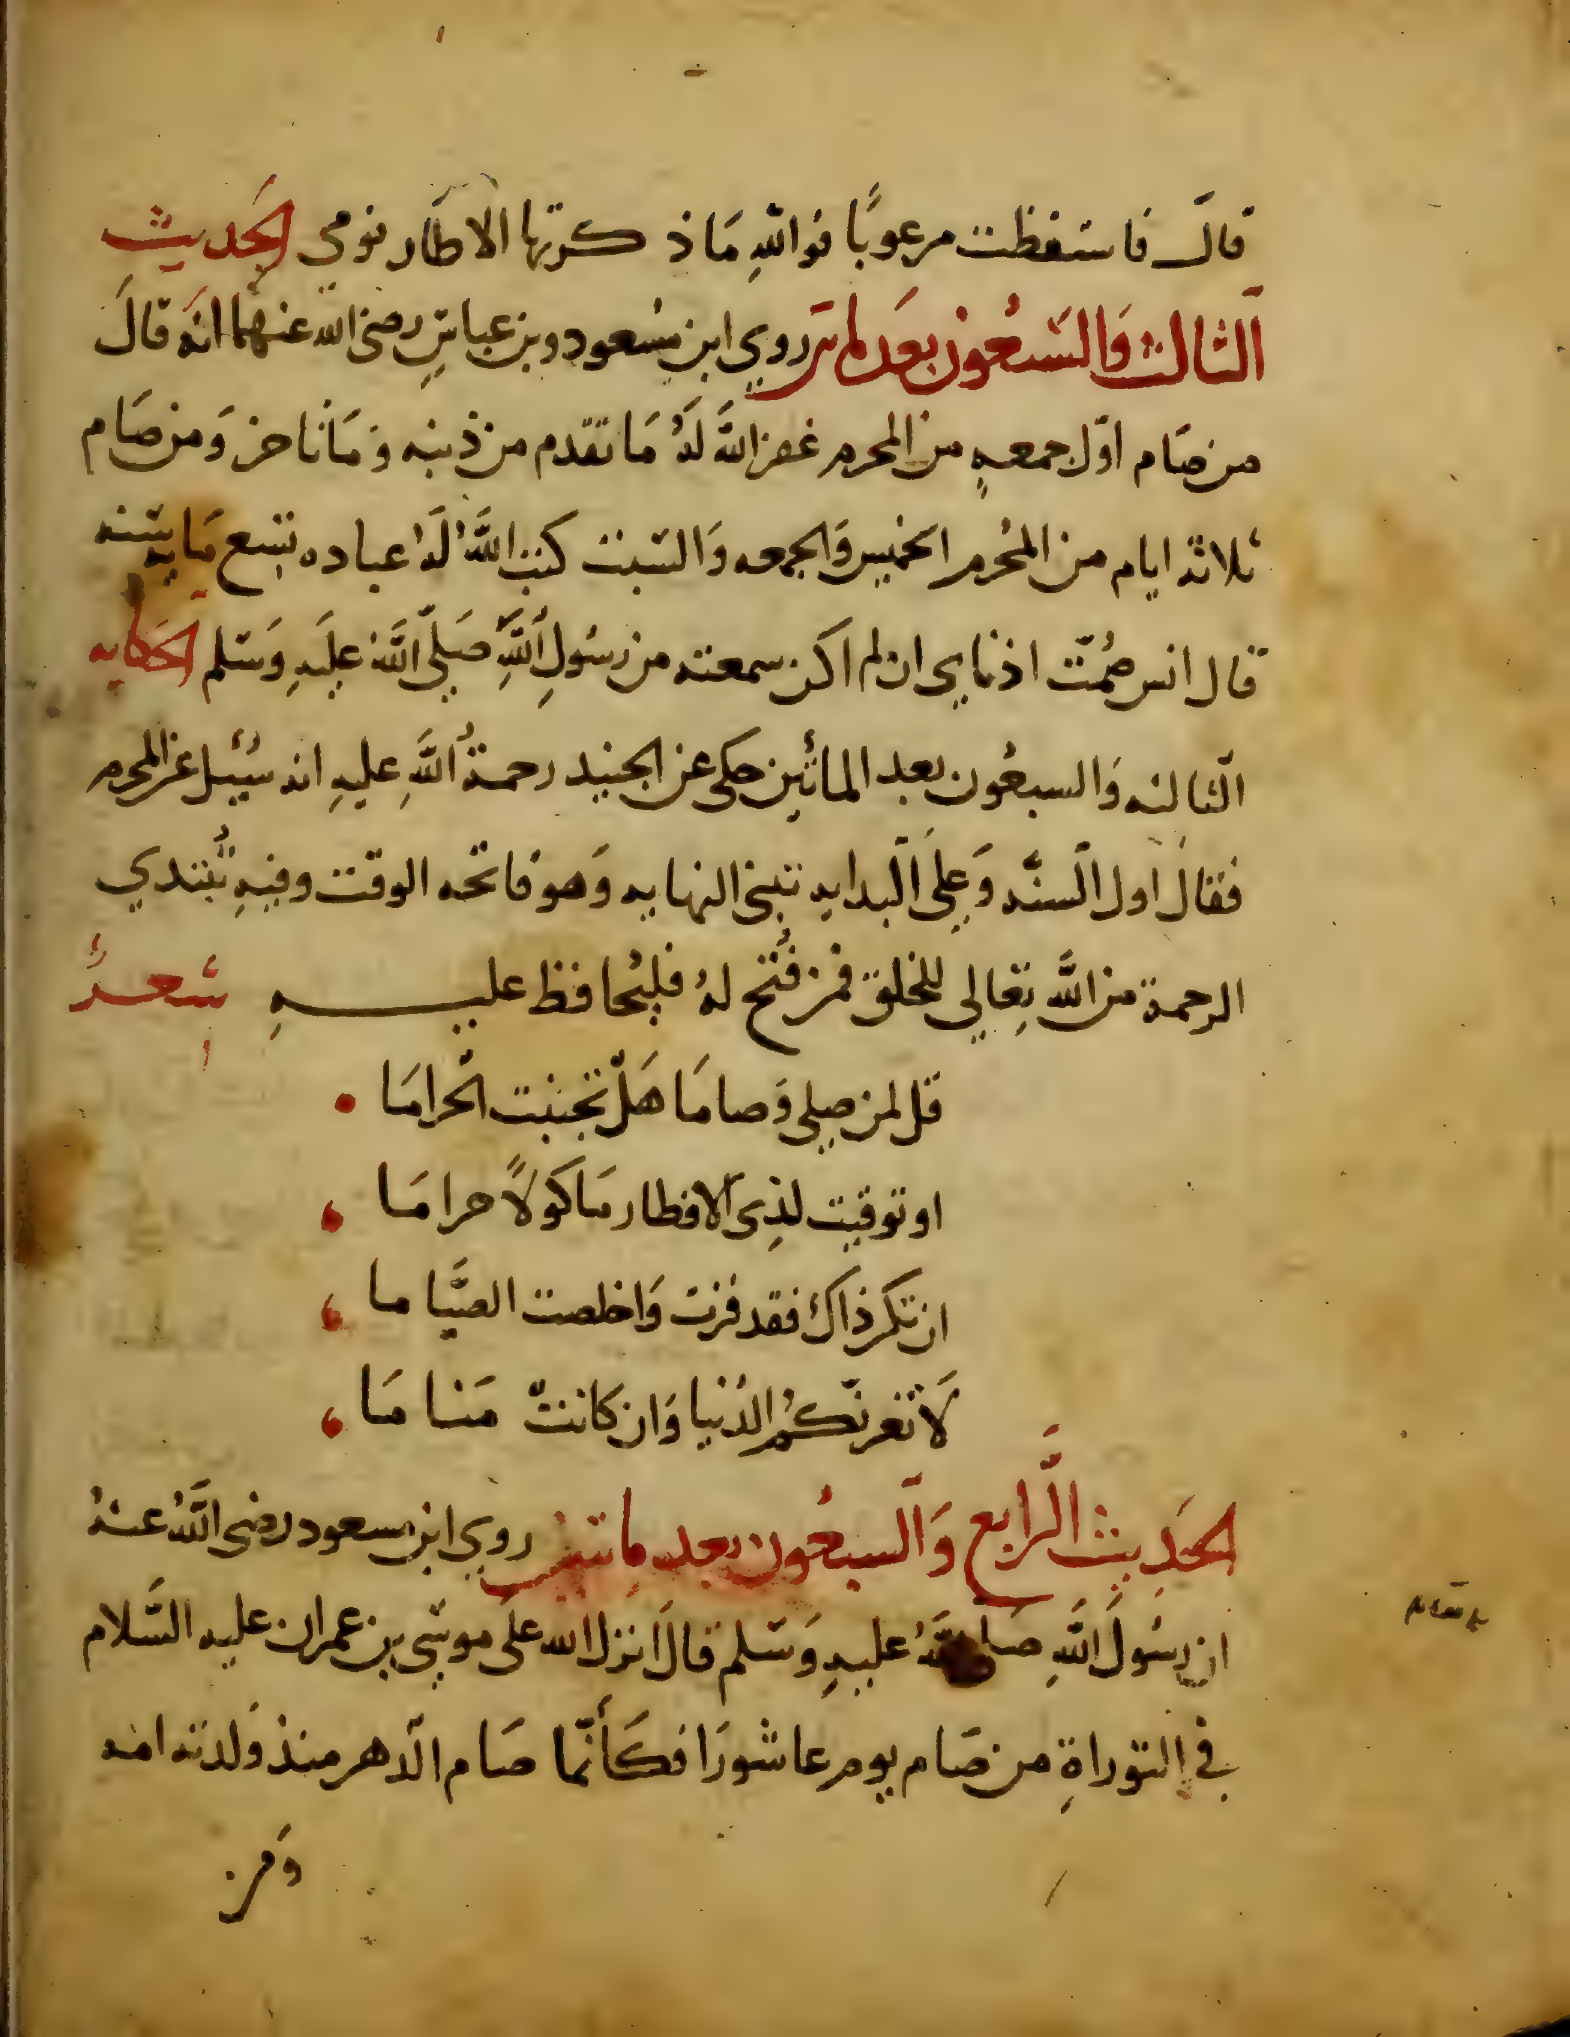 قالَ فاستيقظت مرعوبًا فواللهِ مَا ذكرتها الا طار نومي الحَديث
الثالث وَالسَبعُون بعَد ماتين روي ابن مسُعود وبن عباسٍ رضى الله عنهما انهَ قالَ
من صَام اوّل جمعهٍ من المحرم غفر اللهَ لهُ مَا تقدم من ذنبه وَمَا تاخر وَمن صَام
ثلاثة ايام من المحُرم الخميس وَالجمعه وَالسَبت كتب اللهُ لهَُ عباده تسع مَايه سَنه
قال انس صُمّت اذناي ان لم اكن سمعته من رسُولِ اللهِ صَلّى اللهَُ علَيهِ وَسَلم الحَكايه
الثالثه وَالسبعُون بعد المائتين حكى عن الجنيد رحمةُ اللهَِ عليهِ انه سُئيل عن المحرم
فقالَ اول السنَّه وَعلَى البدايه تبنى النهايه وَهو فاتحه الوقت وفيهِ تُبتدي
الرحمة من اللهَّ تعِالى للخلق فمن فُتح لهُ فليُحافظ عليهِ شعرٌ
قل لمن صلى وَصامَا هَلْ تجنبت الحرامَا
او توقيت لذِى الافطار مَاكولاً حرامَا
ان تكن ذاك فقد فزت وَاخلصت الصيَّاما
لَا تغرنّكمُ الدُنيا وَان كانتْ مَنامَا
الحَدِيث الرَّابع وَالسبعُون بعد ماِتين روي ابن مسعود رضى اللهَُّ عنهُ
ان رسُولَ اللهَِّ صَلى اللهَُ عليهِ وَسَلم قالَ انزل الله على موسَى بن عمران عليه السَّلام
في التوراةِ من صَام يوم عاشورَا فكَأنّما صَام الدهر منذ وَلدته امه
وَمن